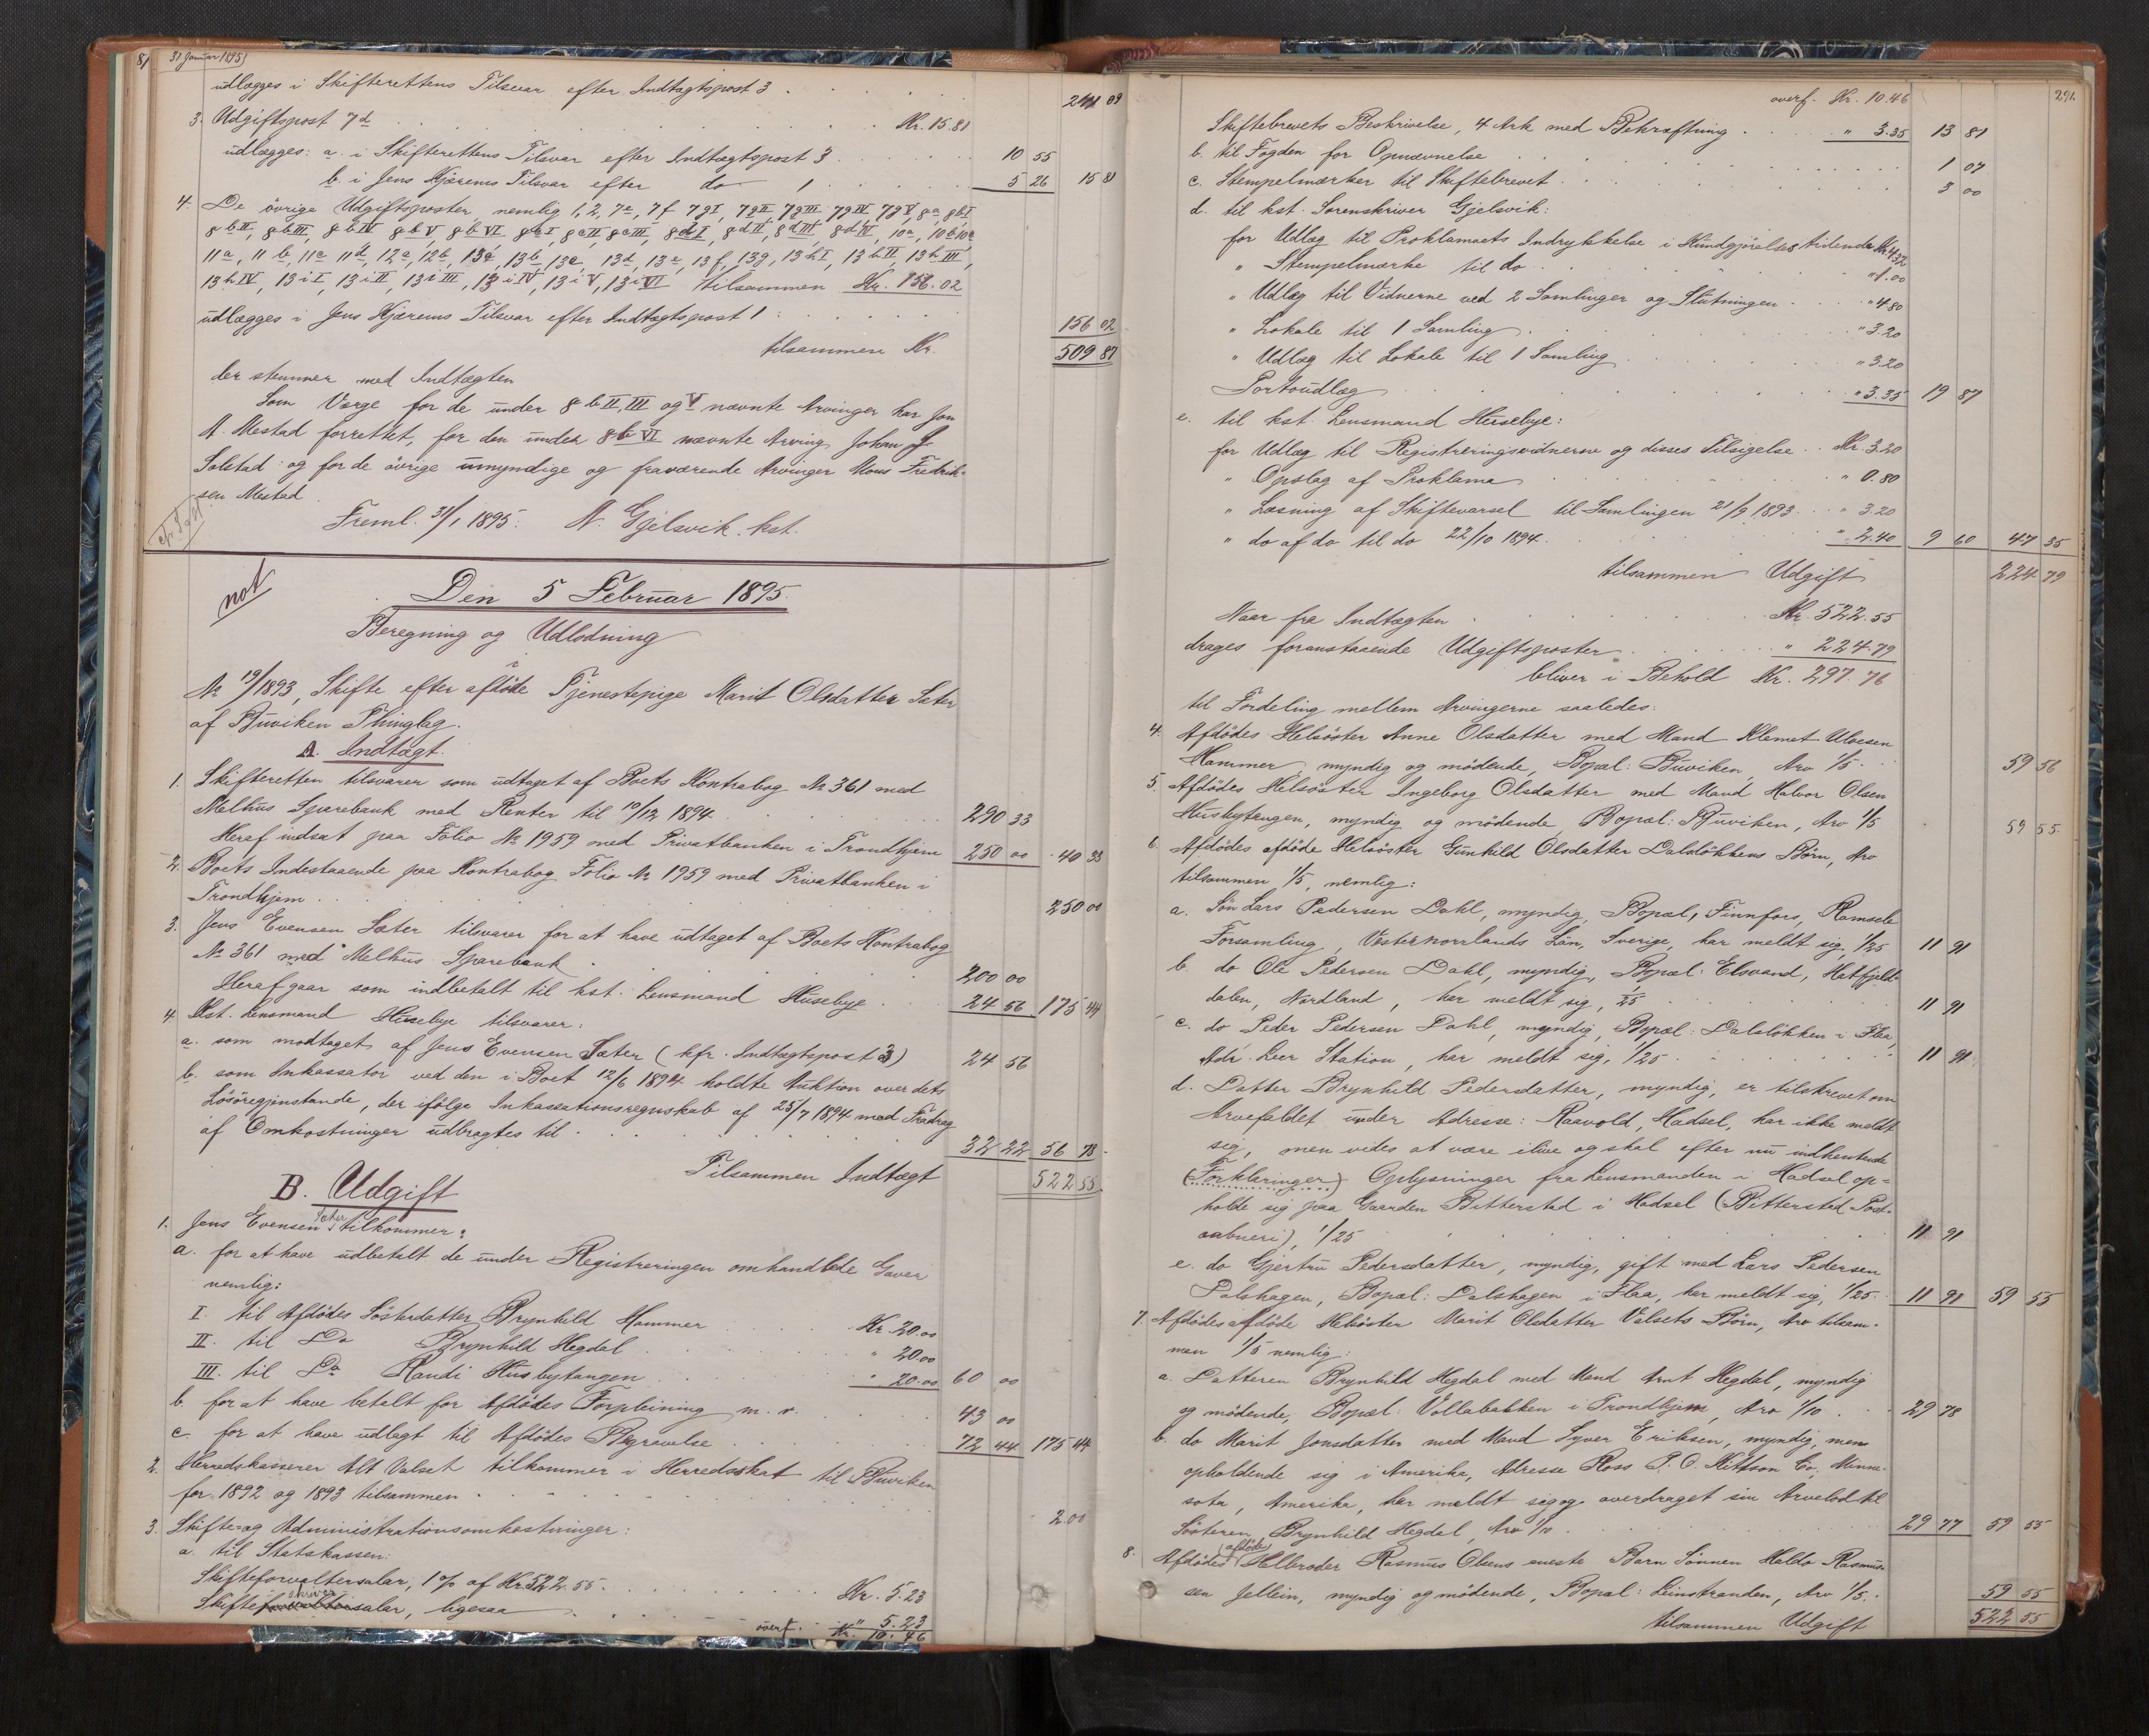 81 31 Januar 1895
udlægges i Skifterettens Tilsvar efter Indtægtspost 3 . . . 09
3. Udgiftspost 7d . . . Kr. 15.81
udlægges: a. i Skifterettens Tilsvar efter Indtægtspost 3 . . . 10 55
b. i Jens Kjærems Tilsvar efter do 1 . . . 5 26 15 81
4. De övrige Udgiftsposter, nemlig 1, 2, 7e, 7f 7gI, 7gII, 7gIII, 7gIV, 7gV, 8a, 8bI
8bII, 8bIII, 8bIV 8bV 8bVI 8cI, 8cII 8cIII, 8dI, 8dII, 8dIII, 8dIV, 10a, 10b, 10c
11a, 11b, 11c 11d, 12a, 12b, 13a, 13b, 13c, 13d, 13e, 13f, 13g, 13hI, 13hII, 13hIII,
13hIV, 13iI, 13iII, 13iIII, 13iIV, 13iV, 13iVI tilsammen Kr. 156.02
udlægges i Jens Kjærems Tilsvar efter Indtægtspost 1 . . . 156 02
tilsammen Kr. 509 87
der stemmer med Indtægten
Som Verge for de under 8bII, III og V nævnte Arvinger har Jon
A. Mestad forrettet, for den under 8bVI nævnte Arving Johan J.
Solstad og for de övrige umyndige og fraværende Arvinger Mons Fredrik-
sen Mestad.
Freml. 31/1 1895. N. Gjelsvik. kst.
not
Den 5 Februar 1895.
Beregning og Udlodning
i
No 19/1893, Skifte efter afdöde Tjenestepige Marit Olsdatter Sæter
af Buviken Thinglag.
A. Indtægt.
1. Skifteretten tilsvarer som udtaget af Boets Kontrabog No 361 med
Melhus Sparebank med Renter til 10/12 1894 . . . 290 33
Heraf indsat paa Folio No 1959 med Privatbanken i Trondhjem 250 00 40 33
2. Boets Indestaaende paa Kontrabog Folio No 1959 med Privatbanken i
Trondhjem . . . 250 00
3. Jens Evensen Sæter tilsvarer for at have udtaget af Boets Kontrabog
No 361 med Melhus Sparebank . . . 200 00
Heraf gaar som indbetalt til kst. Lensmand Husebye . . . 24 56 175 44
4. Kst. Lensmand Husebye tilsvarer:
a. som modtaget af Jens Evensen Sæter (kfr. Indtægtspost 3) 24 56
b. som Inkassator ved den i Boet 12/6 1894 holdte Auktion over dets
Lösöregjenstande, der ifölge Inkassationsregnskab af 25/7 1894 med Fradrag
af Omkostninger udbragtes til . . . 32 22 56 78
Tilsammen Indtægt 522 55
B. Udgift
1. Jens Evensen Sæter tilkommer:
a. for at have udbetalt de under Registreringen omhandlede Gaver
nemlig:
I. til Afdödes Sösterdatter Brynhild Hammer . . . Kr. 20.00
II. til Do Brynhild Hegdal . . . " 20.00
III. til Do Randi Husbytangen . . . " 20.00 60 00
b. for at have betalt for Afdödes Forpleining m. v. . . . 43 00
c. for at have udlagt til Afdödes Begravelse . . . 72 44 175 44
2. Herredskasserer Alt Valset tilkommer i Herredsskat til Buviken
for 1892 og 1893 tilsammen . . . 2.00
3. Skifte- og Administrationsomkostninger:
a. til Statskassen:
Skifteforvaltersalar, 1% af Kr 522.55. . . . Kr. 5.23
Skifteskriversalar, ligesaa . . . " 5.23
overf. Kr. 10.46
overf. Kr. 10.46 291.
Skiftebrevets Beskrivelse, 4 Ark med Bekræftning . . . " 3.35 13 81
b. til Fogden for Opnævnelse . . . 1 07
c. Stempelmærker til Skiftebrevet . . . 3 00
d. til kst. Sorenskriver Gjelsvik:
for Udlæg til Proklamaets Indrykkelse i Kundgjørelsestidende Kr 4.32
" Stempelmærke til do . . . " 1.00
" Udlæg til Vidnerne ved 2 Samlinger og Slutningen . . . " 4.80
" Lokale til 1 Samling . . . " 3.20
" Udlæg til Lokale til 1 Samling . . . " 3.20
Portoudlæg . . . " 3.35 19 87
e. til kst. Lensmand Husebye:
for Udlæg til Registreringsvidnerne og disses Tilsigelse . . Kr. 3.20
" Opslag af Proklama . . . " 0.80
" Læsning af Skiftevarsel til Samlingen 21/9 1893 . . . " 3.20
" do af do til do 22/10 1894 . . . " 2.40 9 60 47 35
tilsammen Udgift 224 79
Naar fra Indtægten . . . Kr. 522.55
drages foranstaaende Udgiftsposter . . . " 224.79
bliver i Behold Kr. 297.76
til Fordeling mellem Arvingerne saaledes:
4. Afdödes Helsöster Anne Olsdatter med Mand Klemet Ulvesen
Hammer, myndig og mödende, Bopæl: Buviken, Arv 1/5 . . . 59 56
5. Afdödes Helsöster Ingeborg Olsdatter med Mand Halvor Olsen
Husbytangen, myndig og mödende, Bopæl: Buviken, Arv 1/5 59 55.
6. Afdödes afdöde Helsöster Gunhild Olsdatter Dalslökkens Börn, Arv
tilsammen 1/5, nemlig:
a. Sön Lars Pedersen Dahl, myndig, Bopæl, Finnfors, Ramsele
Forsamling, Vesternorrlands Län, Sverige, har meldt sig, 1/25 11 91
b. do Ole Pedersen Dahl, myndig, Bopæl: Elsvand, Hatfjeld-
dalen, Nordland, har meldt sig, 1/25 . . . 11 91
c. do Peder Pedersen Dahl, myndig, Bopæl: Dalslökken i Flaa,
Adr. Leer Station, har meldt sig, 1/25 . . . 11 91
d. Datter Brynhild Pedersdatter, myndig, er tilskrevet om
Arvefaldet under Adresse: Raavold, Hadsel, har ikke meldt
sig, men vides at være ilive og skal efter nu indhentede
(Forklaringer) Oplysninger fra Lensmanden i Hadsel op-
holde sig paa Gaarden Bitterstad i Hadsel (Bitterstad Post-
aabneri), 1/25 . . . 11 91
e. do Gjertru Pedersdatter, myndig, gift med Lars Pedersen
Dalshagen, Bopæl: Dalshagen i Flaa, har meldt sig, 1/25 . . 11 91 59 55
7. Afdödes afdöde Helsöster Marit Olsdatter Valsets Börn, Arv tilsam-
men 1/5 nemlig:
a. Datteren Brynhild Hegdal med Mand Arnt Hegdal, myndig
og mödende, Bopæl: Vollabakken i Trondhjem, Arv 1/10 . . 29 78
b. do Marit Jonsdatter med Mand Syver Eriksen, myndig, men
opholdende sig i Amerika, Adresse Ross P. O. Kittson Co, Minne-
sota, Amerika, har meldt sig og overdraget sin Arvelod til
Sösteren Brynhild Hegdal, Arv 1/10 . . . 29 77 59 55
8. Afdödes afdöde Helbroder Rasmus Olsens eneste Barn Sönnen Haldo Rasmus-
sen Jellein, myndig og mödende, Bopæl: Leinstranden, Arv 1/5. . 59 55
tilsammen Udgift 522 55